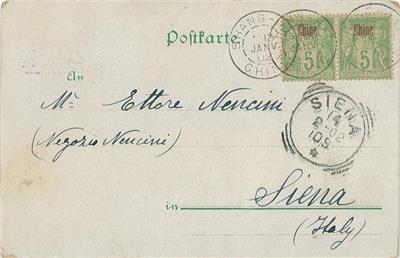 Postkarte
SHANG-
JANV
02
CHI
Chine
Chine
5
5
An
Mr. Ettore Nencini
(Negozio Nencini)
SIENA
14
2-02
10S
Siena
in
(Italy)